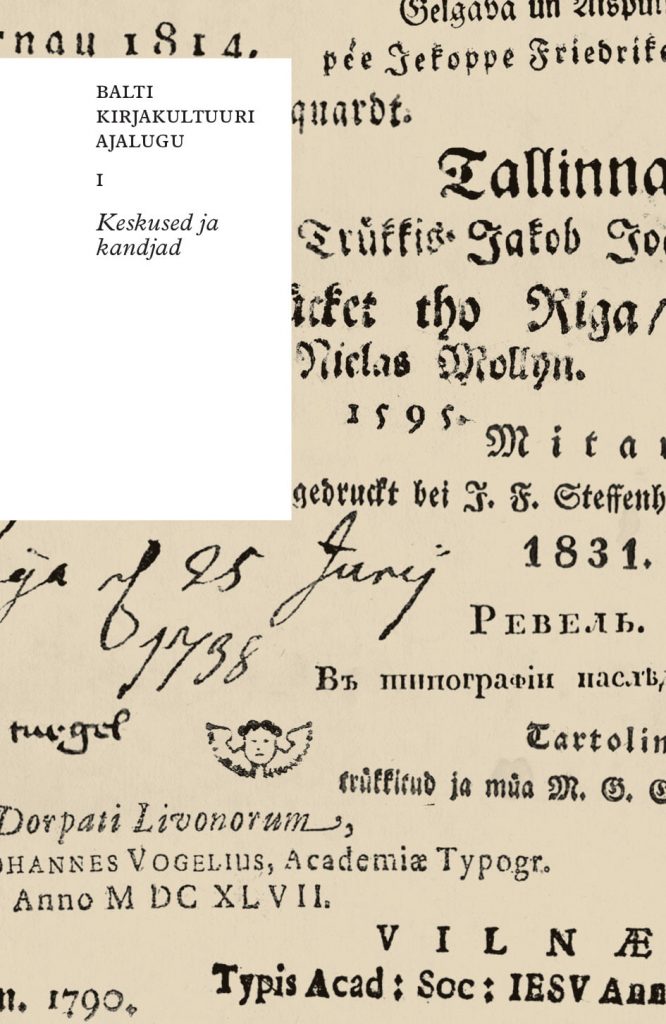 Gelgava un Aispu
rnau 1814.
pée Jekoppe Friedrik
BALTI
KIRJAKULTUURI
AJALUGU
I
Keskused ja
kandjad
quardt.
Tallinna
Trükkis Jakob Jo
ücket tho Riga/
Niclas Mollyn.
1595.
Mita
gedruckt bei J. F. Steffenh
25 Junij
1738
1831.
РЕВЕЛЬ.
Въ типографіи наслѣ
turgel
Tartolin
trükkitud ja müa M. G.
Dorpati Livonorum,
OHANNES VOGELIUS, Academiæ Typogr.
Anno M DC XLVII.
VILNÆ
Typis Acad: Soc: IESV Ann
n. 1790.